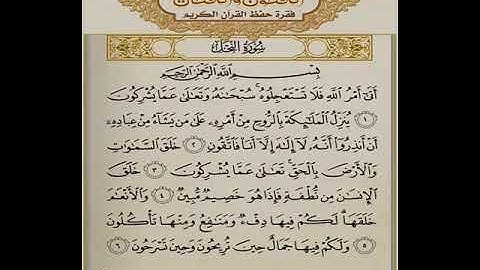 فقرة حفظ القرآن الكريم
سُورَةُ النَّحْلِ
بِسْمِ اللَّهِ الرَّحْمَٰنِ الرَّحِيمِ
أَتَىٰٓ أَمْرُ اللَّهِ فَلَا تَسْتَعْجِلُوهُ ۚ سُبْحَٰنَهُۥ وَتَعَٰلَىٰ عَمَّا يُشْرِكُونَ
١ يُنَزِّلُ الْمَلَٰٓئِكَةَ بِالرُّوحِ مِنْ أَمْرِهِۦ عَلَىٰ مَن يَشَآءُ مِنْ عِبَادِهِۦٓ
أَنْ أَنذِرُوٓا۟ أَنَّهُۥ لَآ إِلَٰهَ إِلَّآ أَنَا۠ فَاتَّقُونِ ٢ خَلَقَ السَّمَٰوَٰتِ
وَالْأَرْضَ بِالْحَقِّ ۚ تَعَٰلَىٰ عَمَّا يُشْرِكُونَ ٣ خَلَقَ
الْإِنسَٰنَ مِن نُّطْفَةٍ فَإِذَا هُوَ خَصِيمٌ مُّبِينٌ ٤ وَالْأَنْعَٰمَ
خَلَقَهَا ۗ لَكُمْ فِيهَا دِفْءٌ وَمَنَٰفِعُ وَمِنْهَا تَأْكُلُونَ
٥ وَلَكُمْ فِيهَا جَمَالٌ حِينَ تُرِيحُونَ وَحِينَ تَسْرَحُونَ ٦